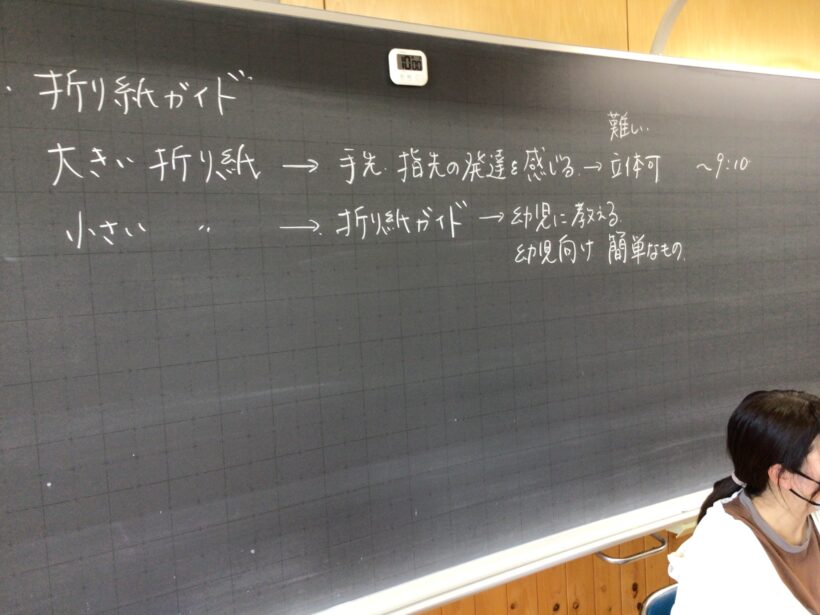 ・折り紙ガイド
難しい
大きい 折り紙 → 手先・指先の発達を感じる → 立体可 〜9:10
小さい 〃 → 折り紙ガイド → 幼児に教える
幼児向け 簡単なもの